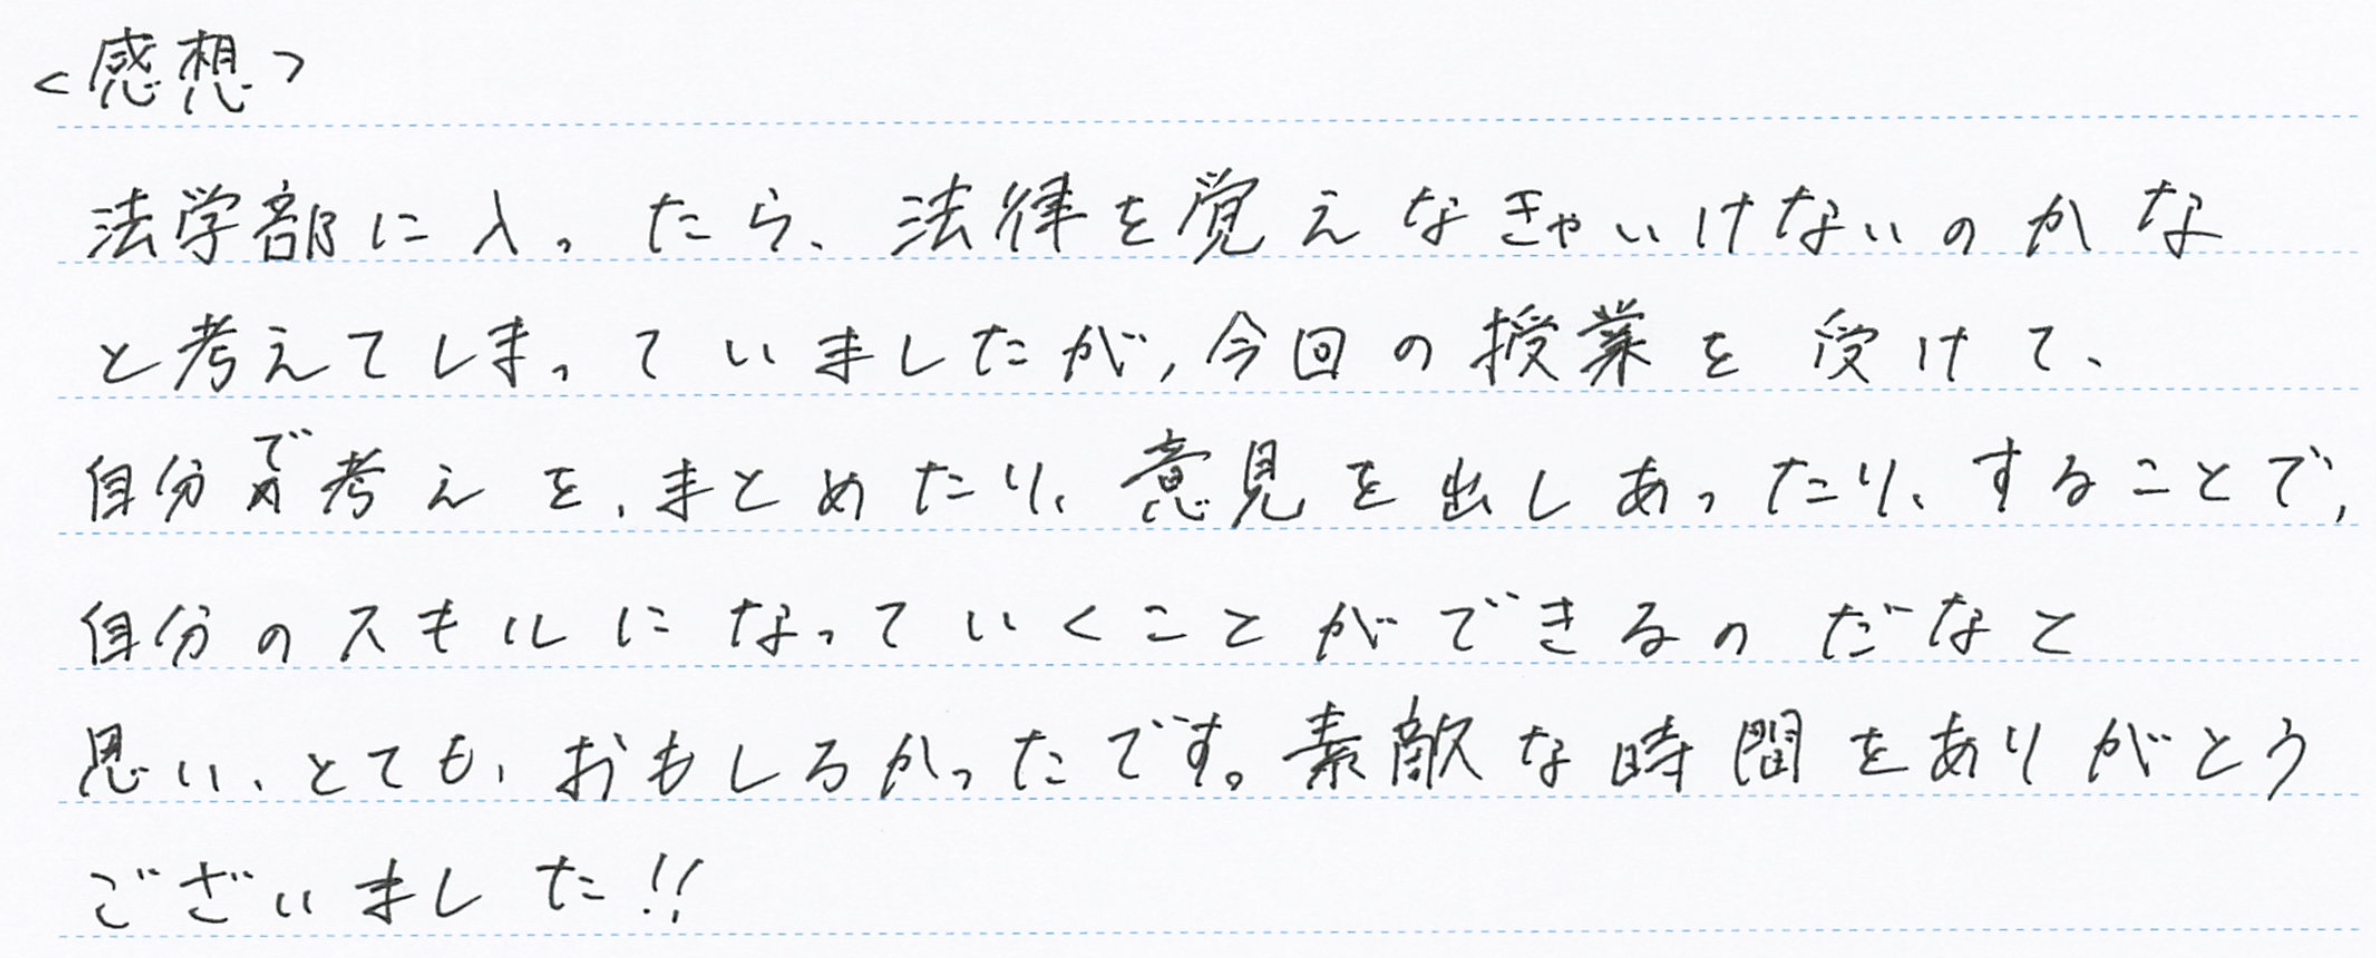 <感想>
法学部に入ったら、法律を覚えなきゃいけないのかな
と考えてしまっていましたが,今回の授業を受けて、
自分で考えを、まとめたり、意見を出しあったり、することで,
自分のスキルになっていくことができるのだなと
思い、とても、おもしろかったです。素敵な時間をありがとう
ございました!!